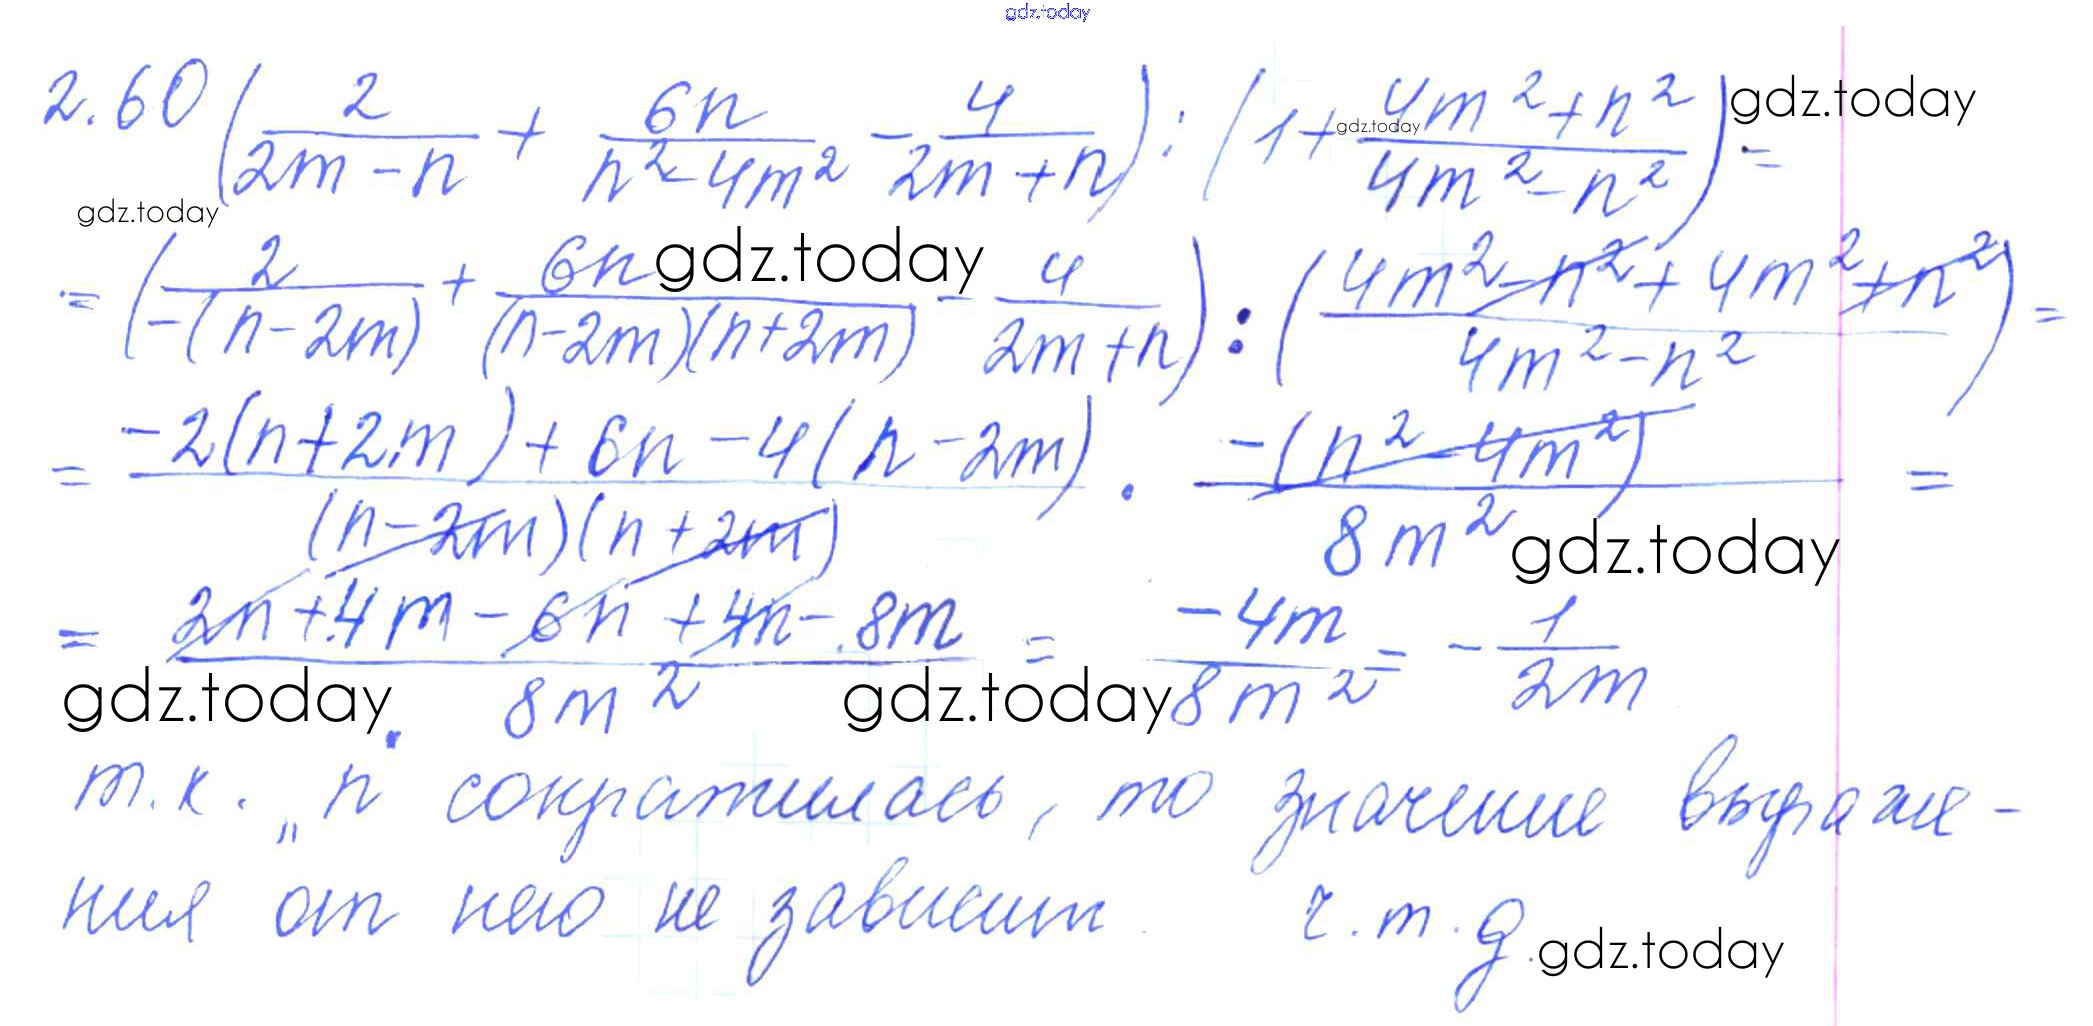 gdz.today
2.60 (2/(2m-n) + 6n/(n²-4m²) - 4/(2m+n)) : (1 + (4m²+n²)/(4m²-n²)) = gdz.today
gdz.today
gdz.today
= (2/(-(n-2m)) + 6n/((n-2m)(n+2m)) - 4/(2m+n)) : ((4m²-n²+4m²+n²)/(4m²-n²)) =
gdz.today
= (-2(n+2m)+6n-4(n-2m))/((n-2m)(n+2m)) · (-(n²-4m²))/(8m²) =
gdz.today
= (2n+4m-6n+4n-8m)/(8m²) = (-4m)/(8m²) = -1/(2m)
gdz.today gdz.today
т.к. „n" сократилась, то значение выраже-
ния от нею не зависит ч.т.д.
gdz.today